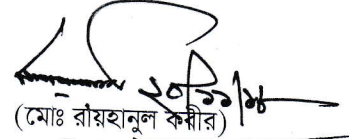 ২০/১১/১৮
(মোঃ রায়হানুল কবীর)